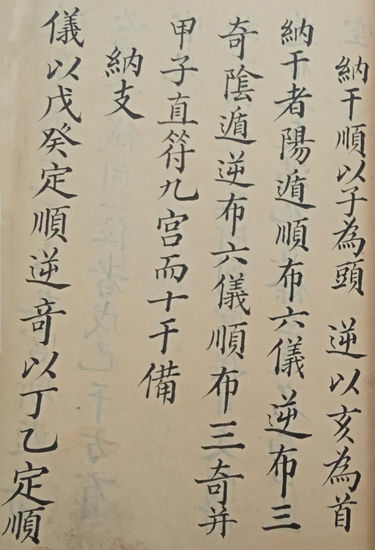 納干順以子為頭 逆以亥為首
納干者陽遁順布六儀逆布三
奇陰遁逆布六儀順布三奇并
甲子直符九宮而十干備
納支
儀以戊癸定順逆奇以丁乙定順